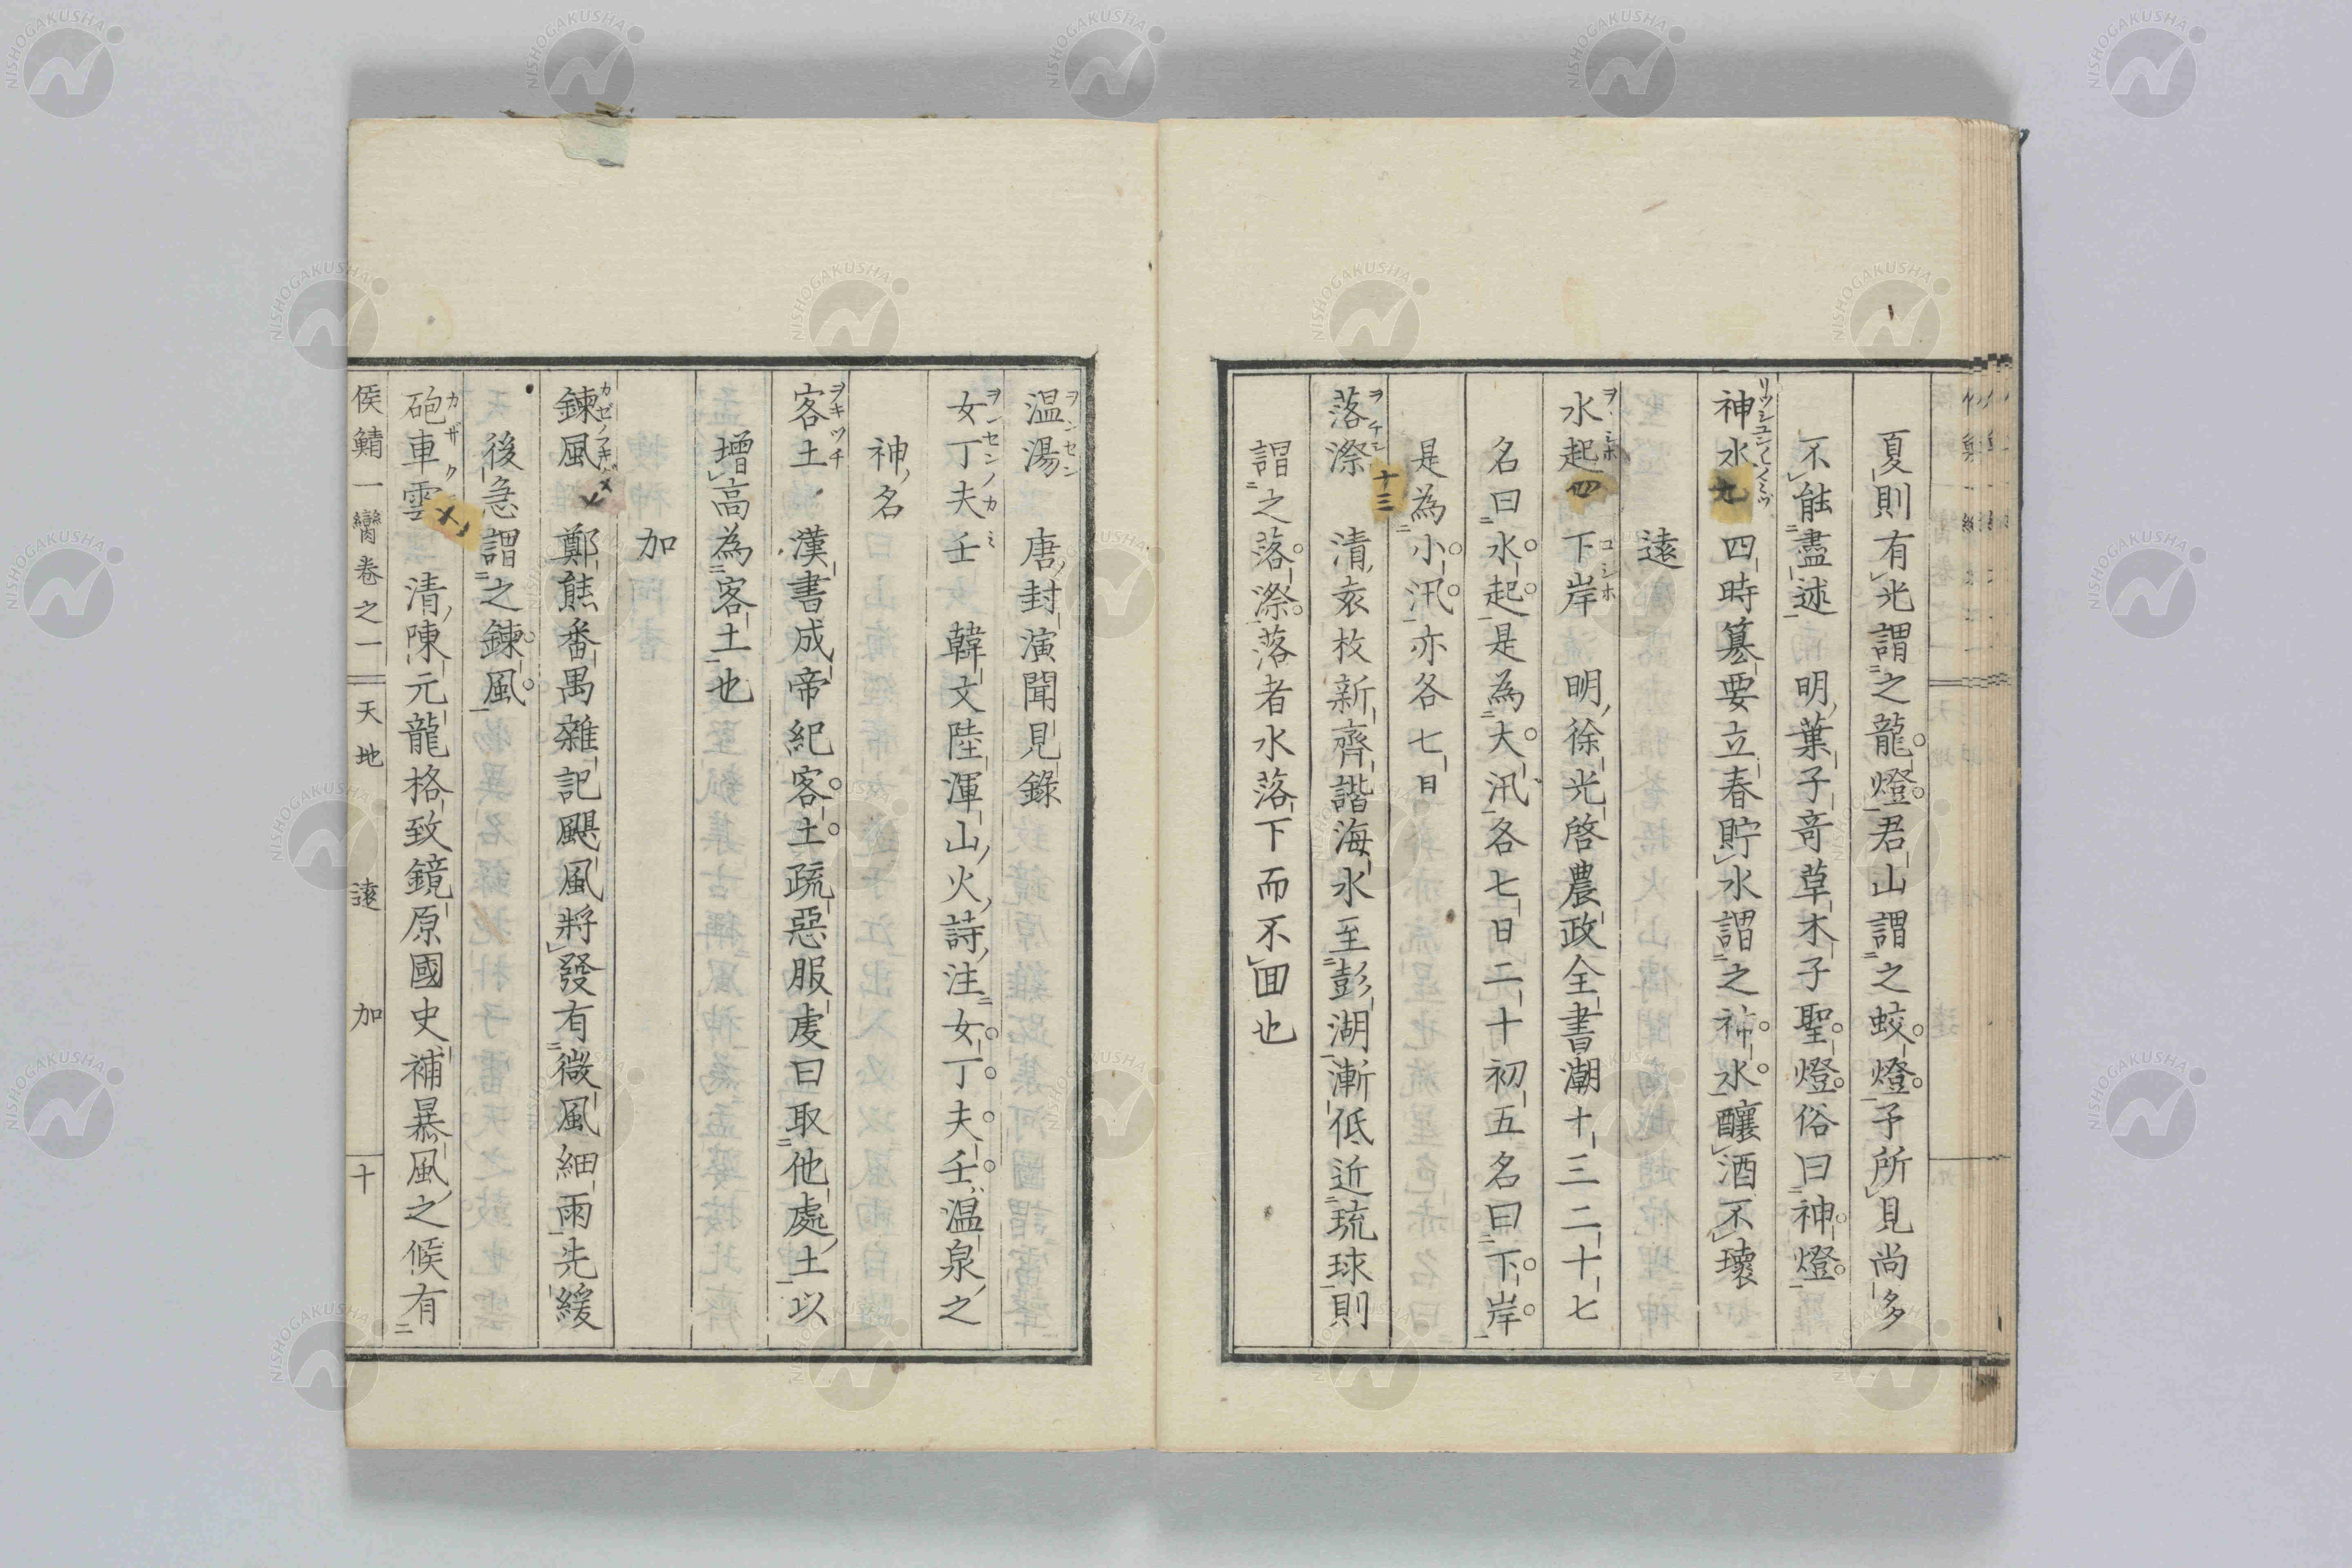 夏則有光謂之龍燈君山謂之蛟燈予所見尚多
不能盡述　明葉子竒草木子聖燈俗曰神燈
神水　四時纂要立春貯水謂之神水釀酒不壞
遠
水起　下岸　明徐光啓農政全書潮十三二十七
名曰水起是為大汛各七日二十初五名曰下岸
是為小汛亦各七日
落漈　清袁枚新齊諧海水至彭湖漸低近琉球則
謂之落漈落者水落下而不囬也
温湯　唐封演聞見錄
女丁夫壬　韓文陸渾山火詩注女丁夫壬温泉之
神名
客土　漢書成帝紀客土疏惡服虔曰取他處土以
增高為客土也
加
鍊風　鄭熊番禺雜記颶風將發有微風細雨先緩
後急謂之鍊風
砲車雲　清陳元龍格致鏡原國史補暴風之候有
侯鯖一臠卷之一　天地　遠　加　十